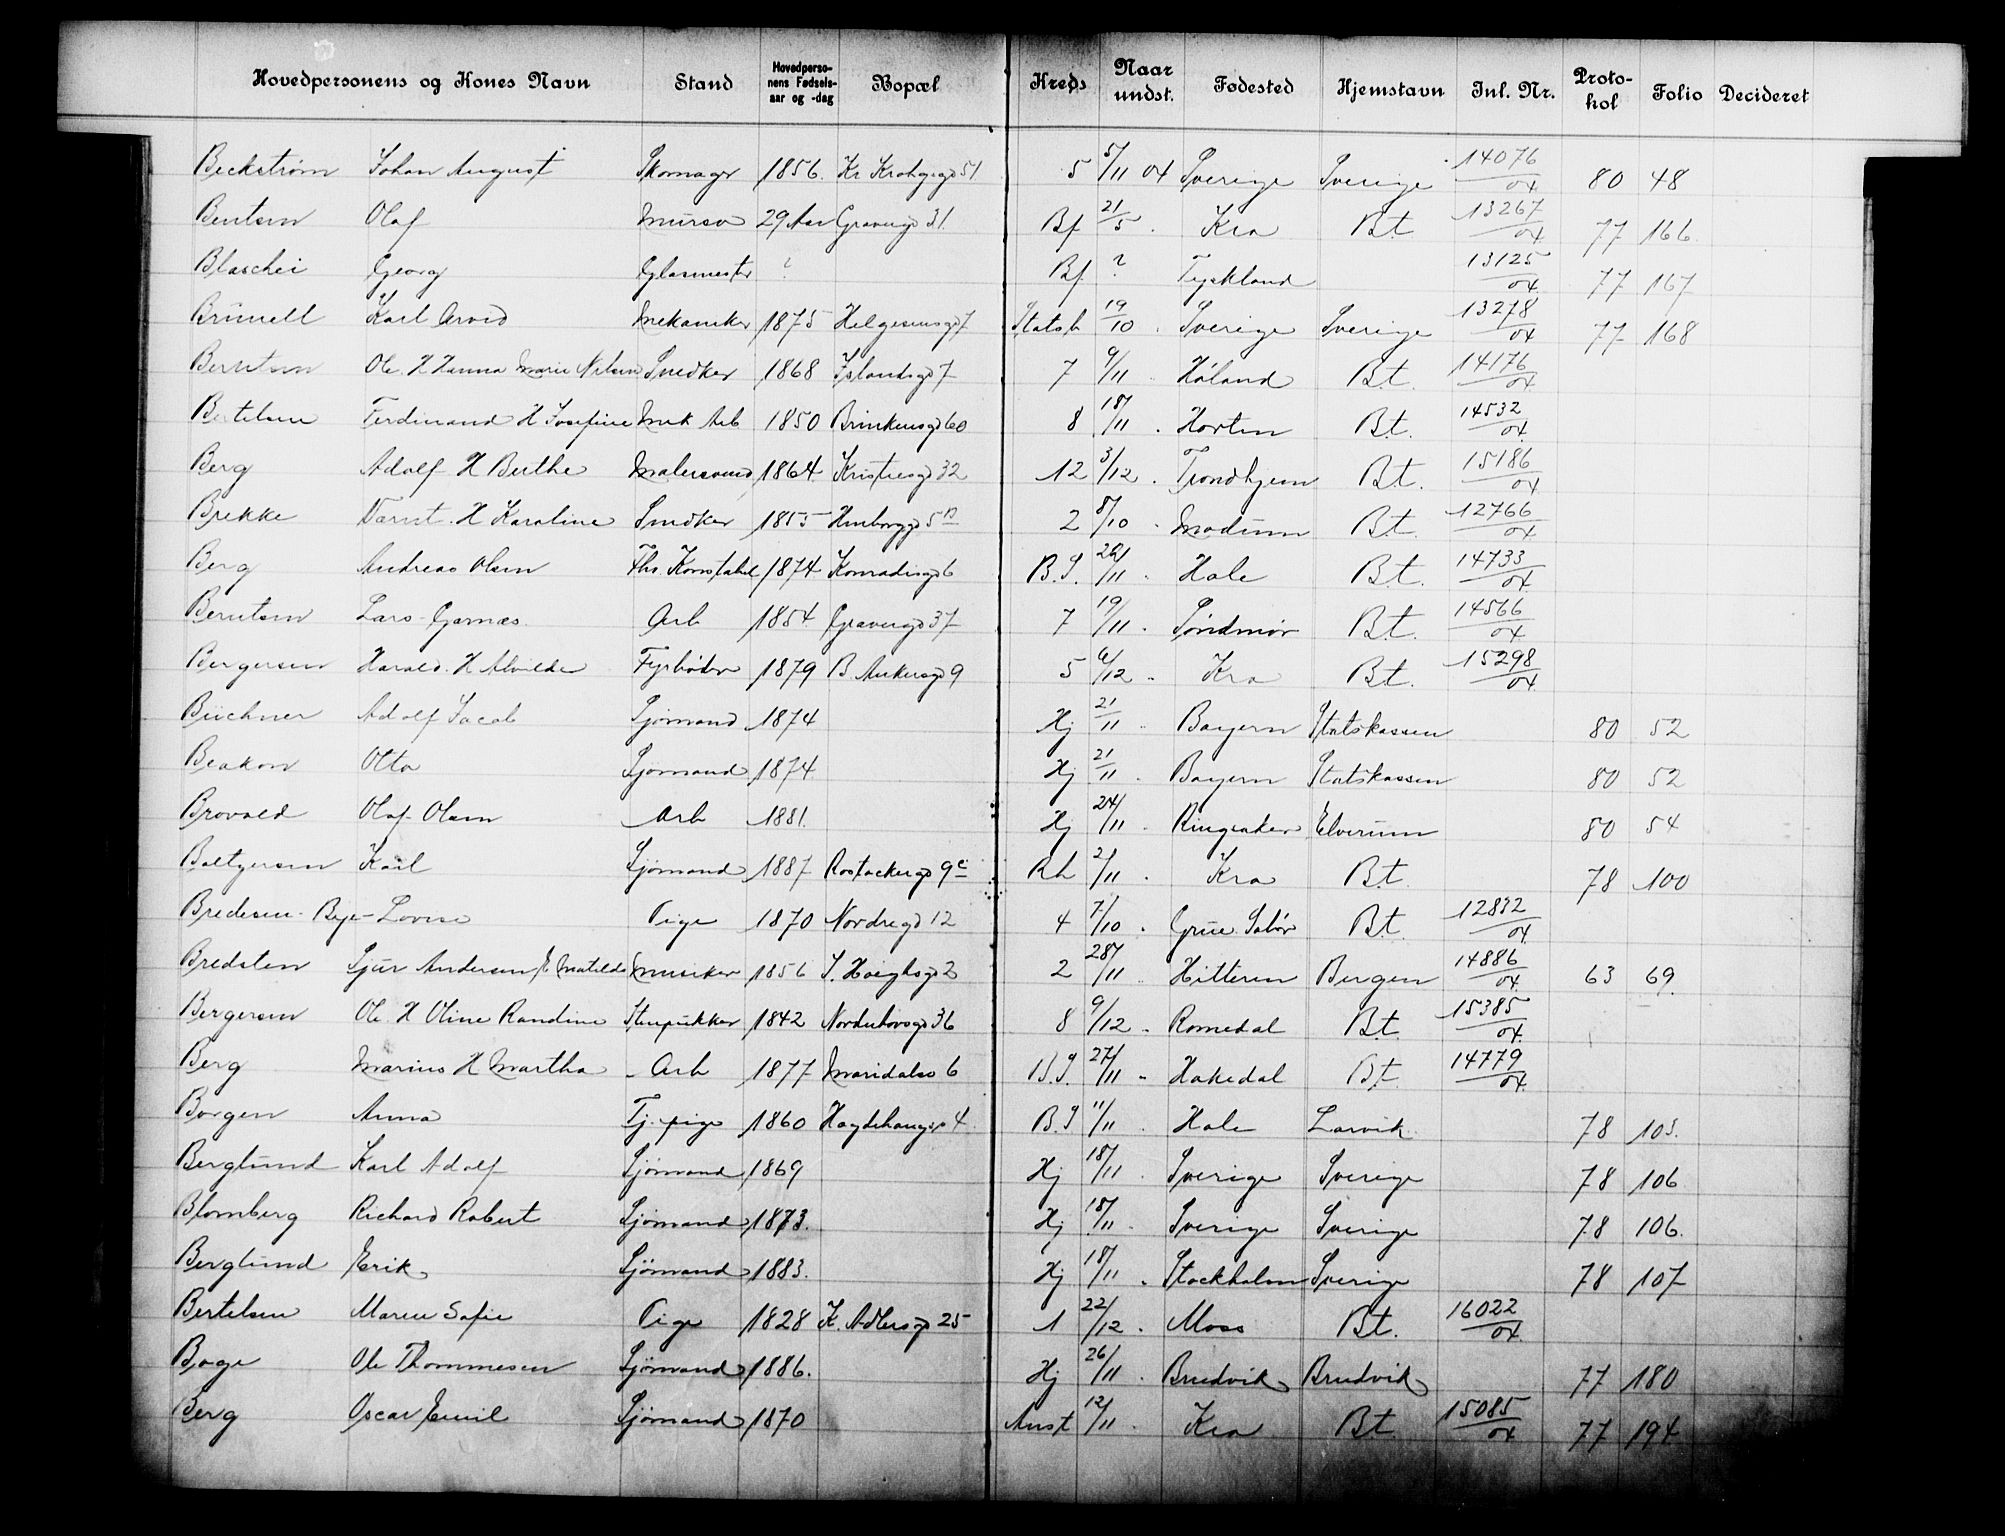 Hovedpersonens og Kones Navn Stand Hovedpersonens Fødselsaar og -dag Bopæl Kreds Naar undst. Fødested Hjemstavn Inl. Nr. Protokol Folio Decideret
Beckstrøm Johan August Skomagr 1856. Kr Krohgsgd 51 5 5/11 04 Sverige Sverige 14076/04 80 48
Berntsen Olaf Mursv 29 Aar Gravergd 31. Bf 21/5 . Kra Bt 13267/04 77 166.
Blaschei Georg Glasmestr ? Bf ? Tyskland 13125/04 77 167
Brunell Karl Arvid Mekaniker 1875 Helgesensgd 7 Statsb 19/10 . Sverige Sverige 13278/04 77 168
Berntsen Ole. H Hanna Marie Nilsen Snedker 1868 Islandsgd 7 7 9/11 . Høland Bt. 14176/04
Bertelsen Ferdinand H Josefine Mek Arb 1850 Brinkensgd 60 8 18/11 . Horten Bt. 14532/04
Berg Adolf H Berthe Malersvend 1864 Kristiesgd 32 12 3/12 . Trondhjem Bt. 15186/04
Brekke H Karoline Snedker 1855 5 2 8/10 . Modum Bt. 12766/04
Berg Andreas Olsen Ths. Konstabel 1874 Konradisgd 6 B.S. 26/11 . Hole Bt. 14733/04
Berntsen Lars Garnæs Arb 1854 Gravergd 37 7 19/11 . Søndmør Bt. 14566/04
Bergersen Harald. H Alvilde Fyrbøder 1879 B. Ankersgd 9 5 6/12 . Kra Bt. 15298/04
Büchner Adolf Jacob Sjømand 1874 Hj 21/11 . Bayern Statskassen 80 52
Beakon Otto Sjømand 1874. Hj 21/11 . Bayern Statskassen 80 52
Brovold Olaf Olsen Arb 1881. Hj 24/11 . Ringsaker Elverum 80 54
Baltzersen Karl Sjømand 1887 Rostockergd 9c Rh 2/11 . Kra Bt. 78 100
Bredesen-Bye- Lovise Pige 1870 Nordregd 12 4 7/10 . Grue Solør Bt. 12832/04
Bredsten Sjur Andersen E Matilde Musiker 1856 2 2 28/11 Hitteren Bergen 14886/04 63 69.
Bergersen Ole. H Oline Randine Stenpukker 1842 Norderhovsgd 36 8 9/12 . Romedal Bt. 15385/04
Berg Marius H Martha Arb 1877 Maridalsv 6 B.S. 27/11 . Hakedal Bt. 14779/04
Borgen Anna Tj. pige 1860 4 B.S 11/11 . Hole Larvik 78 103.
Berglund Karl Adolf Sjømand 1869 Hj 18/11 . Sverige Sverige 78 106.
Blomberg Richard Robert Sjømand 1873. Hj 18/11 . Sverige Sverige 78 106.
Berglund Erik Sjømand 1883. Hj 18/11 . Stockholm Sverige 78 107
Bertelsen Maren Sofie Pige 1828 K. Adlersgd 25 1 22/12 . Moss Bt. 16022/04
Boge Ole Thommesen Sjømand 1886. Hj 26/11 . Brudvik Brudvik 77 180
Berg Oscar Emil Sjømand 1870 Anst 12/11 . Kra Bt 15085/04 77 194